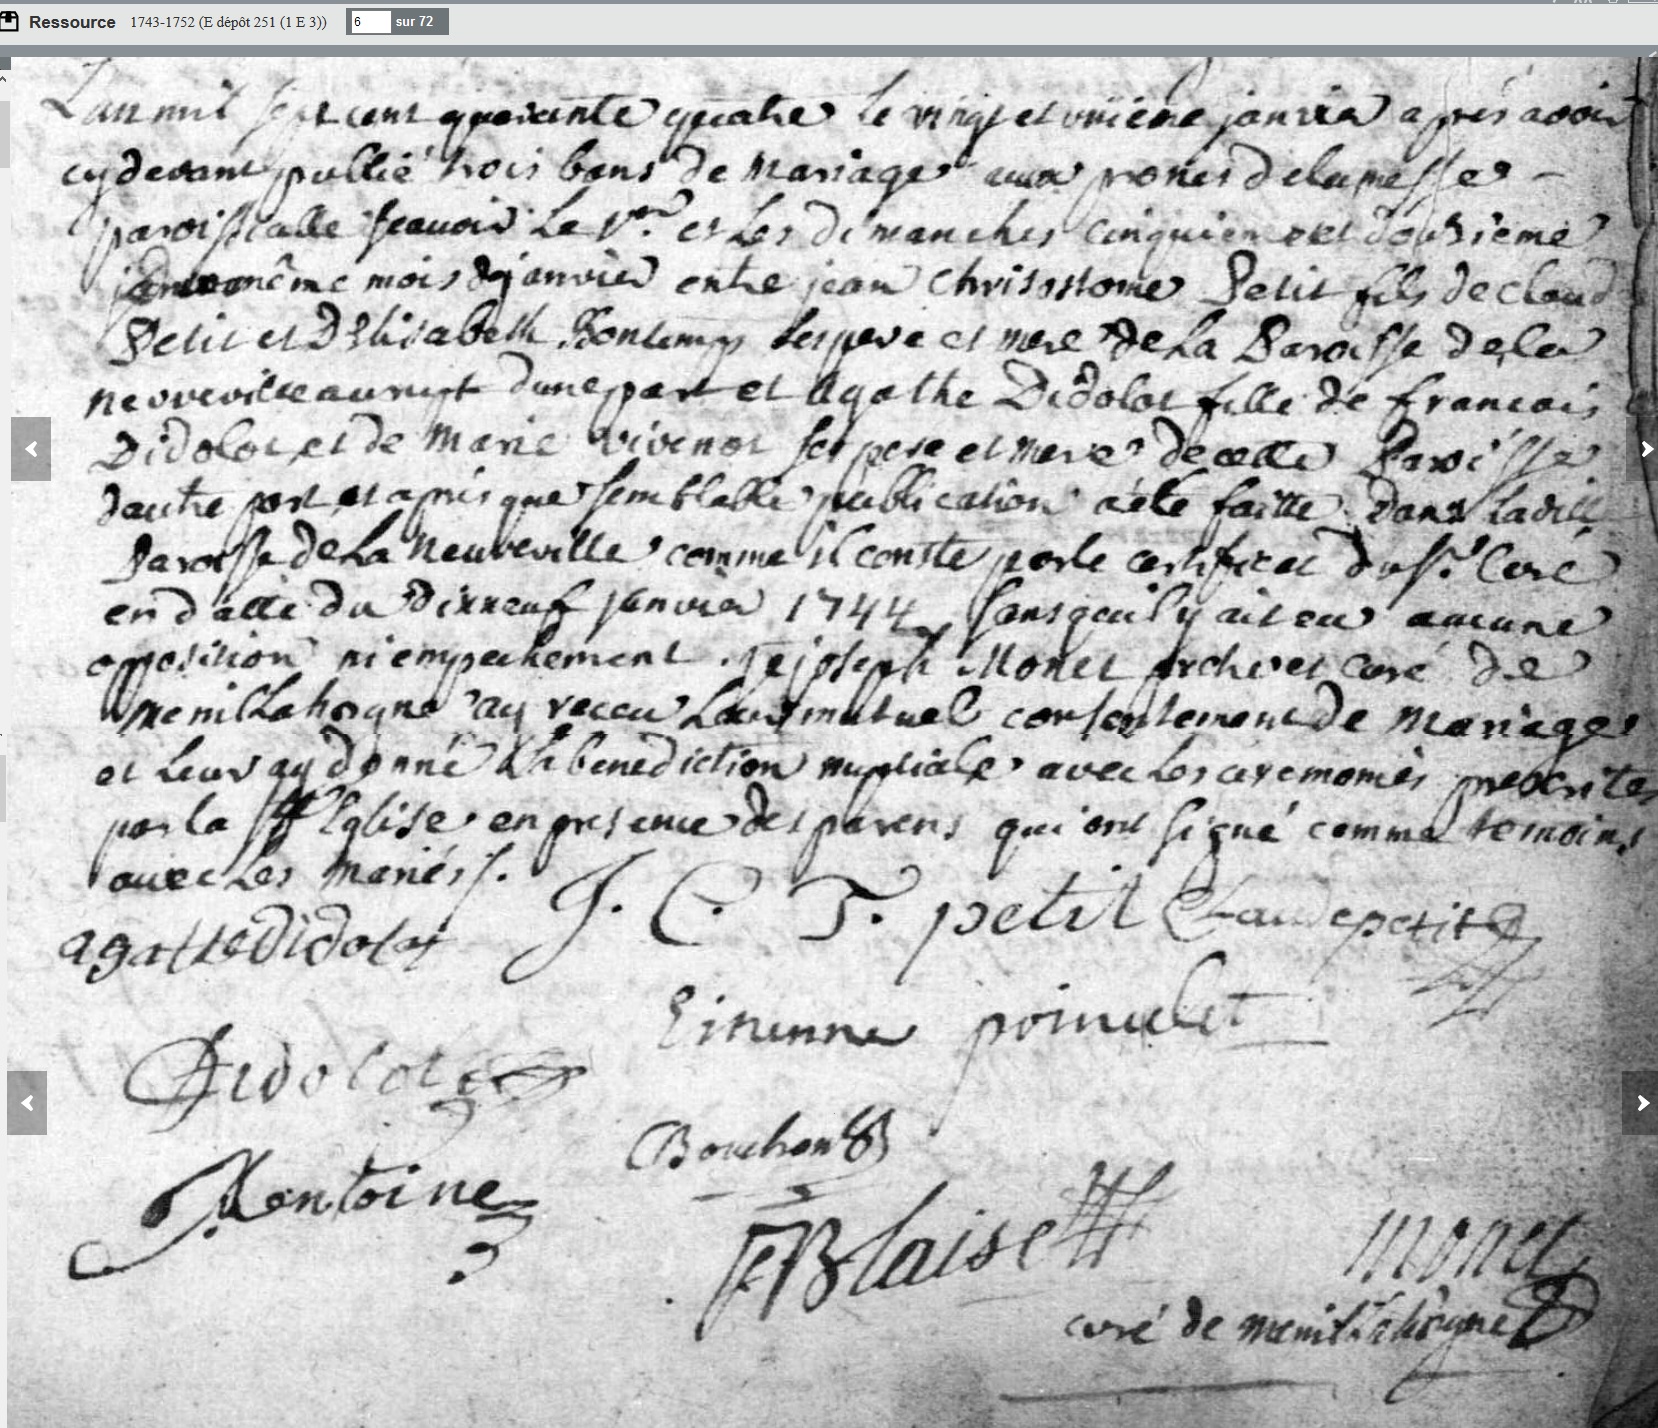 Ressource 1743-1752 (E dépôt 251 (1 E 3)) 6 sur 72
Lan mil sept cent quarante quatre le vingt et unieme janvier apres avoir
cydevant publié trois bans de Mariage aux prones de la messe
paroissialle scavoir Le pr. et Les dimanches cinquieme et douzieme
même mois de janvier entre jean Chrisostome Petit fils de Claude
Petit et D'Elisabeth Bontemps ses pere et mere de La Paroisse de la
neuveville dune part et Agathe Didolot fille de francois
Didolot et de Marie vivenot ses pere et mere de cette Paroisse
dautre part, et apres que semblable publication a été faitte dans laditte
Paroisse de La Neuveville comme il conste par le certificat du Sr. Curé
en datte du dixneuf janvier 1744 sans qu'il y ait eu aucune
opposition ni empechement. je joseph Monet prêtre et curé de
menil La horgne ay receu Leur mutuel consentement de Mariage
et Leur ay donné La benediction nuptiale avec Les ceremonies prescrites
par la Ste Eglise en presence des parens qui ont signé comme temoins
avec Les mariés.
agathe Didolot J. C. T. petit Claude petit
Etienne
Didolot
Bouchon
Blaise monet
curé de menil la horgne